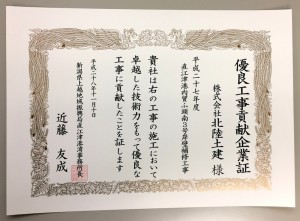 優良工事貢献企業証
株式会社北陸土建 様
平成二十七年度
直江津港内貿ふ頭南3号岸壁補修工事
貴社は右の工事の施工において
卓越した技術力をもって優良な
工事に貢献したことを証します
平成二十八年十一月十日
新潟県上越地域振興局直江津港湾事務所長
近藤 友成